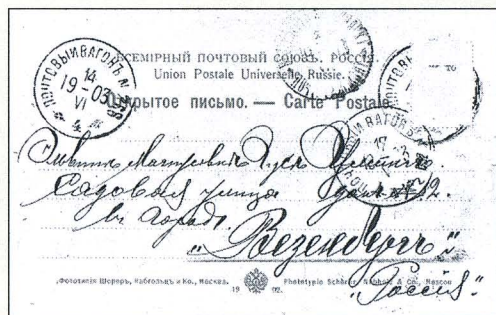 ВСЕМІРНЫЙ ПОЧТОВЫЙ СОЮЗЪ. РОССІЯ.
Union Postale Universelle. Russie.
Открытое письмо. — Carte Postale.
ПОЧТОВЫЙ ВАГОНЪ №
14
19-03
VI
4
17
Садовая улица домъ №
въ городъ
„Везенбергъ"
„Россія"
„Фототипія Шереръ, Набгольцъ и Ко., Москва.
19 02.
Phototypie Scherer, Nabholz & Co., Moscou